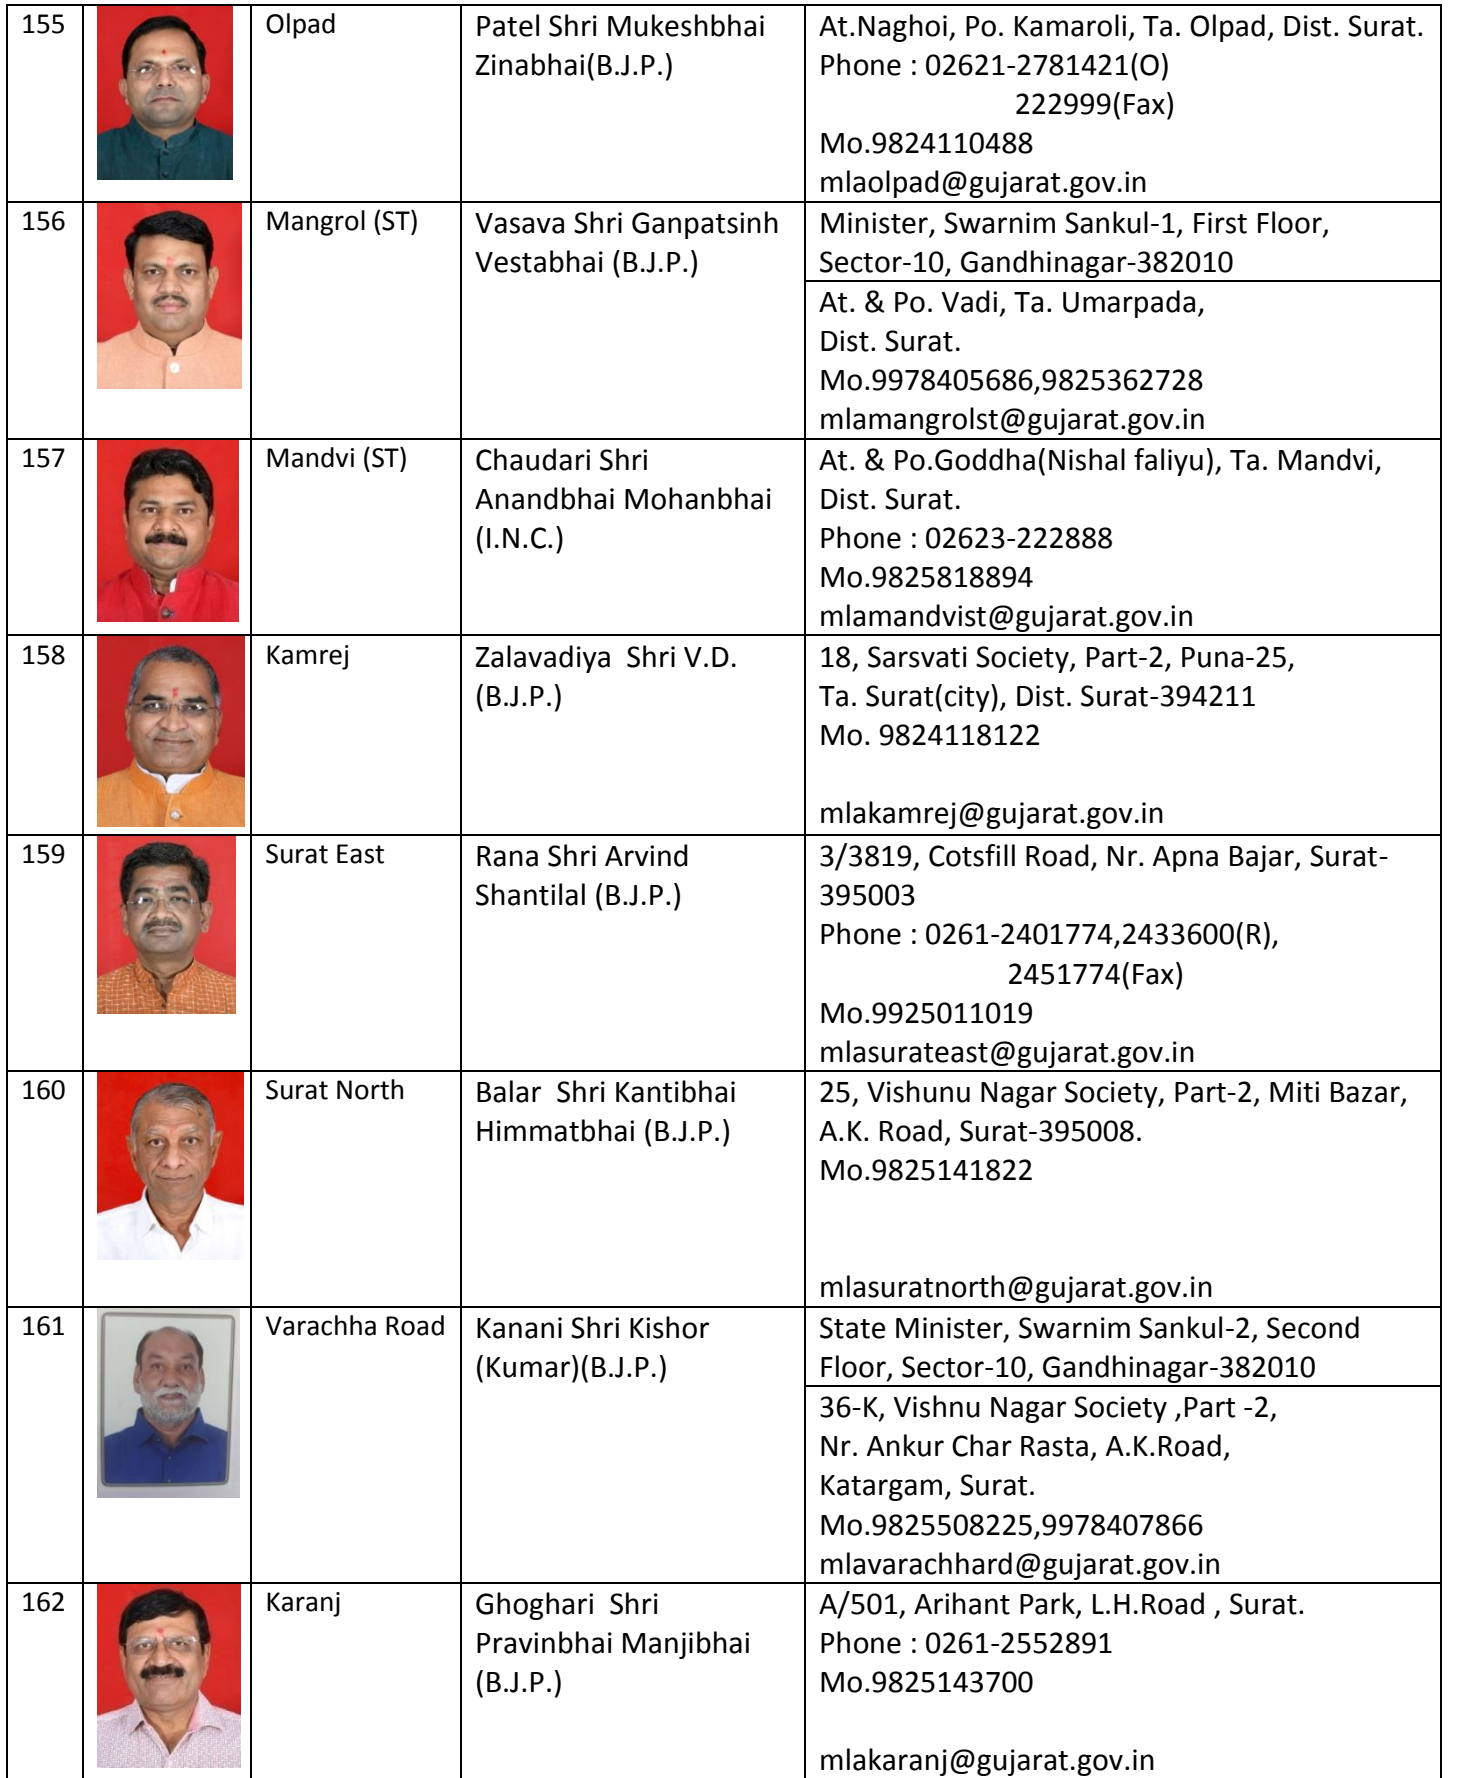 155
Olpad
Patel Shri Mukeshbhai
Zinabhai(B.J.P.)
At.Naghoi, Po. Kamaroli, Ta. Olpad, Dist. Surat.
Phone : 02621-2781421(O)
222999(Fax)
Mo.9824110488
mlaolpad@gujarat.gov.in
156
Mangrol (ST)
Vasava Shri Ganpatsinh
Vestabhai (B.J.P.)
Minister, Swarnim Sankul-1, First Floor,
Sector-10, Gandhinagar-382010
At. & Po. Vadi, Ta. Umarpada,
Dist. Surat.
Mo.9978405686,9825362728
mlamangrolst@gujarat.gov.in
157
Mandvi (ST)
Chaudari Shri
Anandbhai Mohanbhai
(I.N.C.)
At. & Po.Goddha(Nishal faliyu), Ta. Mandvi,
Dist. Surat.
Phone : 02623-222888
Mo.9825818894
mlamandvist@gujarat.gov.in
158
Kamrej
Zalavadiya  Shri V.D.
(B.J.P.)
18, Sarsvati Society, Part-2, Puna-25,
Ta. Surat(city), Dist. Surat-394211
Mo. 9824118122
mlakamrej@gujarat.gov.in
159
Surat East
Rana Shri Arvind
Shantilal (B.J.P.)
3/3819, Cotsfill Road, Nr. Apna Bajar, Surat-
395003
Phone : 0261-2401774,2433600(R),
2451774(Fax)
Mo.9925011019
mlasurateast@gujarat.gov.in
160
Surat North
Balar  Shri Kantibhai
Himmatbhai (B.J.P.)
25, Vishunu Nagar Society, Part-2, Miti Bazar,
A.K. Road, Surat-395008.
Mo.9825141822
mlasuratnorth@gujarat.gov.in
161
Varachha Road
Kanani Shri Kishor
(Kumar)(B.J.P.)
State Minister, Swarnim Sankul-2, Second
Floor, Sector-10, Gandhinagar-382010
36-K, Vishnu Nagar Society ,Part -2,
Nr. Ankur Char Rasta, A.K.Road,
Katargam, Surat.
Mo.9825508225,9978407866
mlavarachhard@gujarat.gov.in
162
Karanj
Ghoghari  Shri
Pravinbhai Manjibhai
(B.J.P.)
A/501, Arihant Park, L.H.Road , Surat.
Phone : 0261-2552891
Mo.9825143700
mlakaranj@gujarat.gov.in